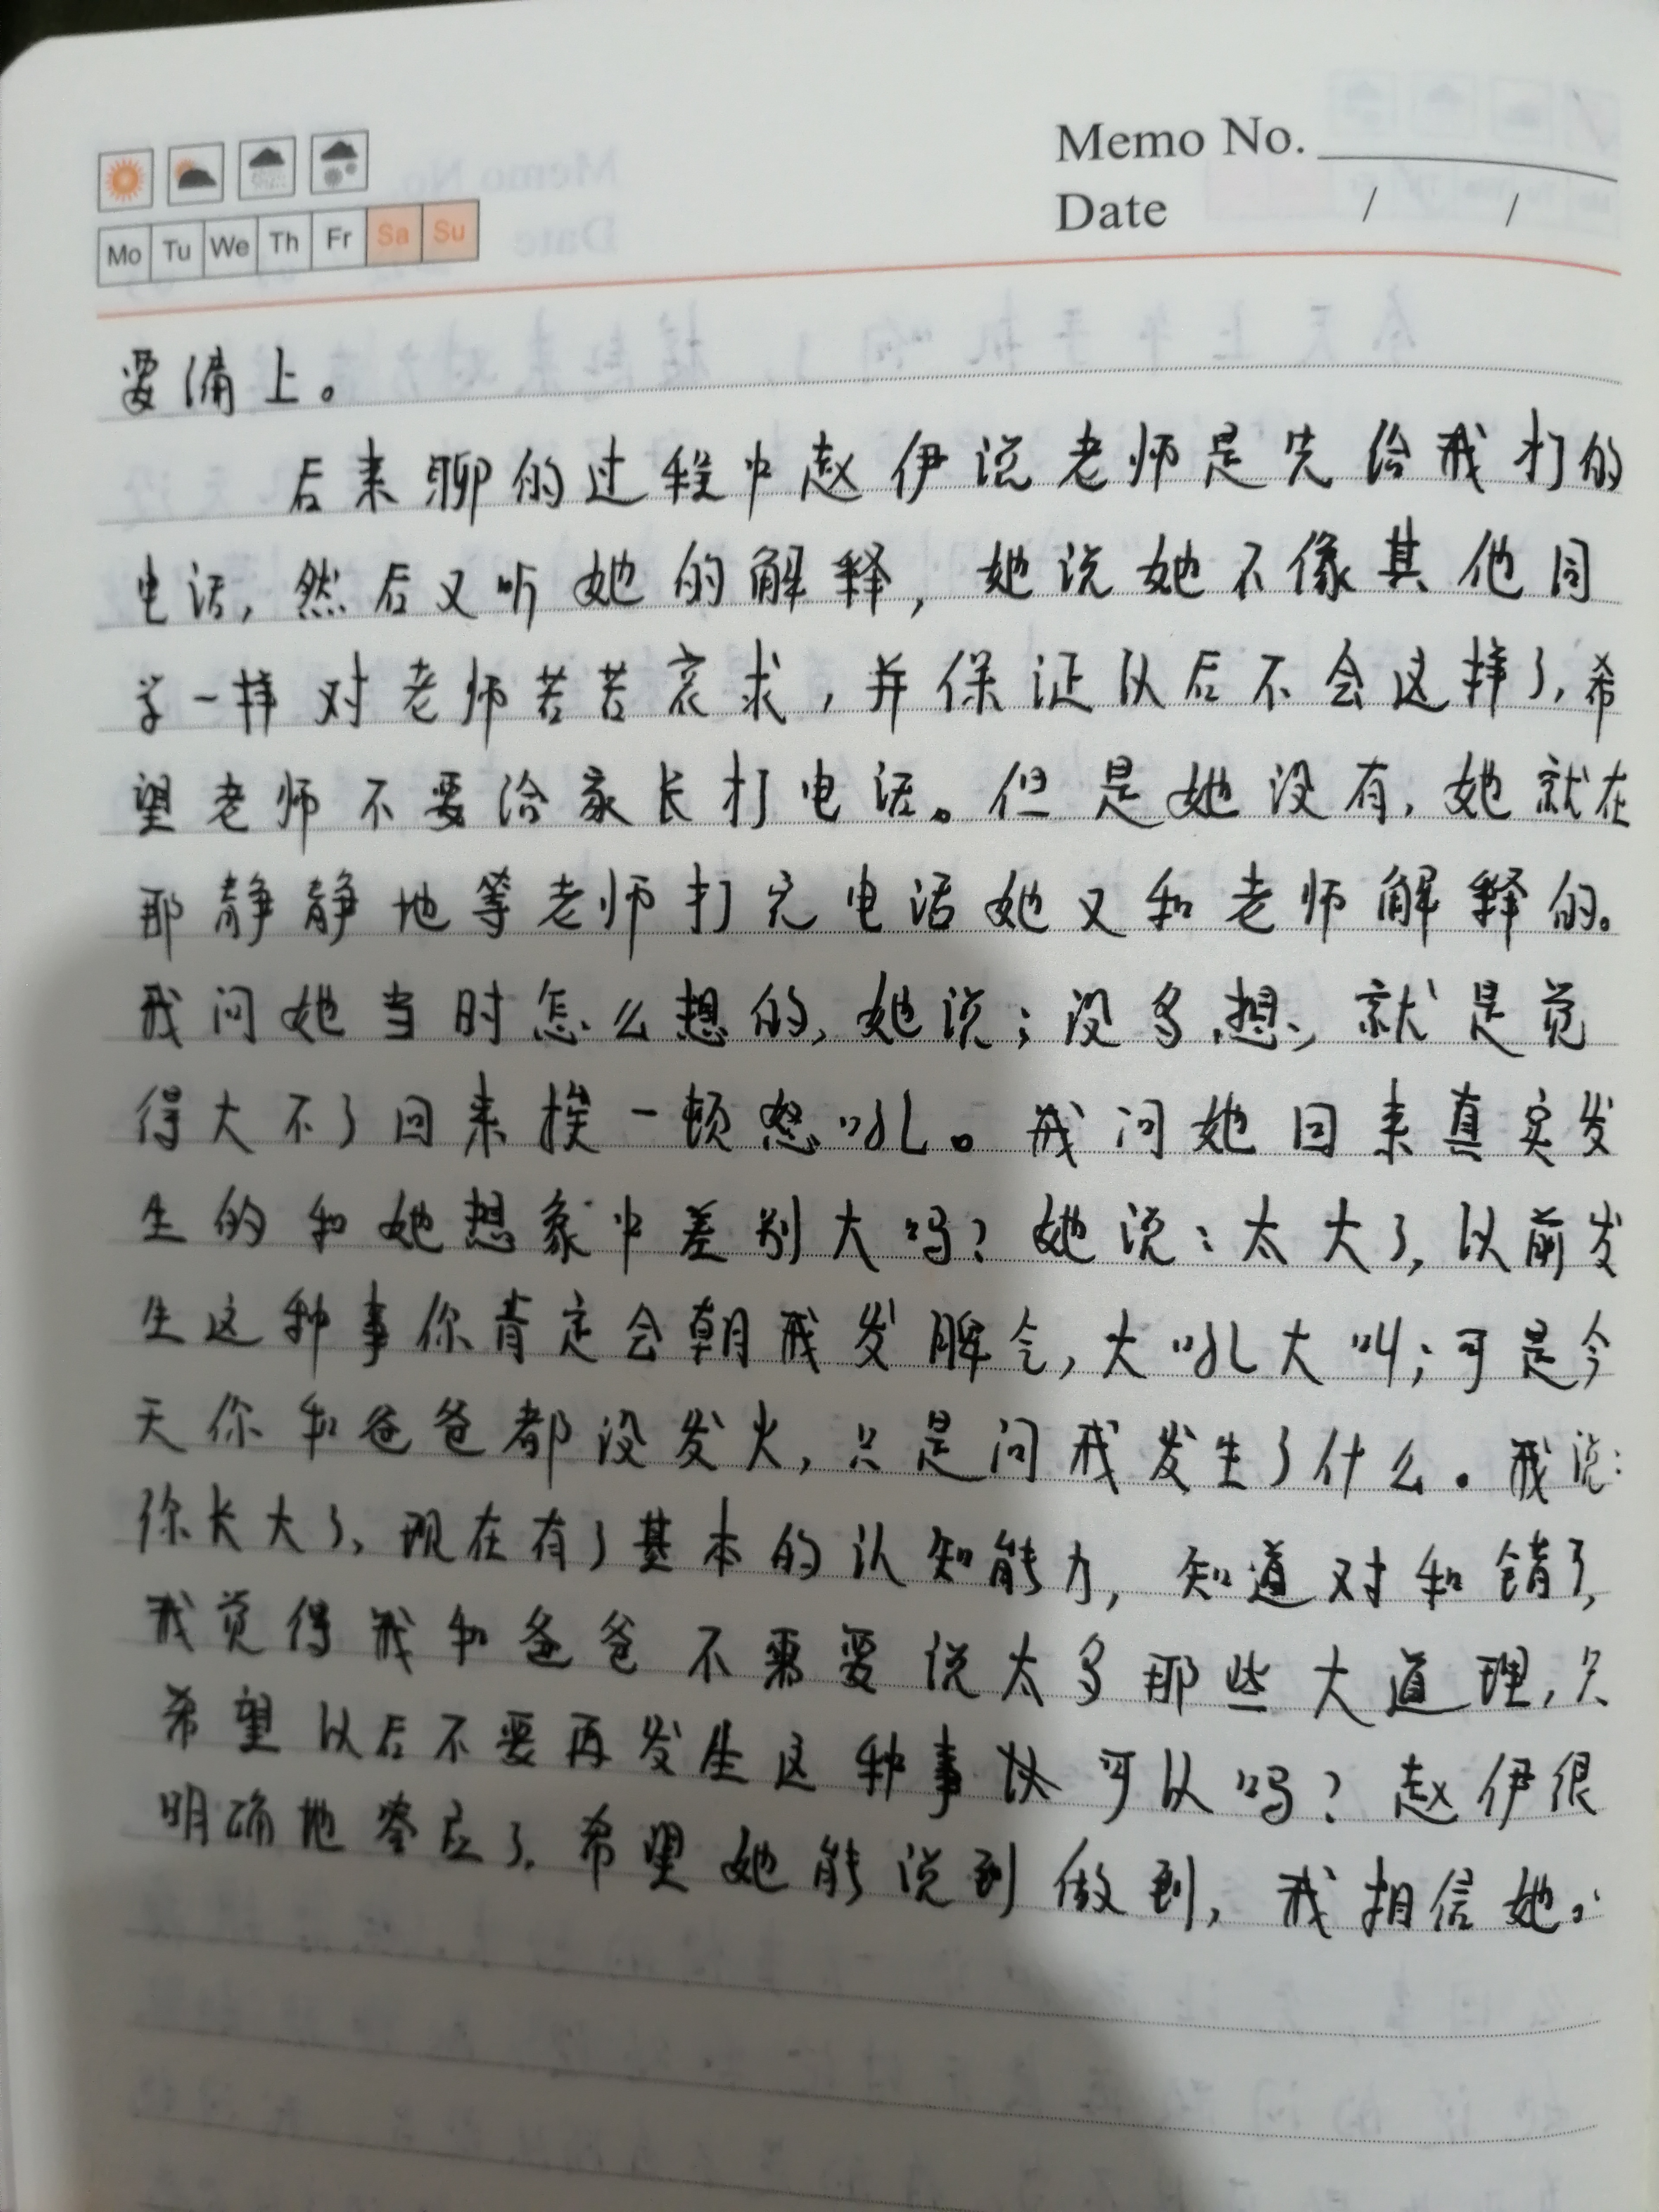 Memo No.
Mo Tu We Th Fr Sa Su
Date / /
要补上。
后来聊的过程中赵伊说老师是先给我打的
电话,然后又听她的解释,她说她不像其他同
学一样对老师苦苦哀求,并保证以后不会这样了,希
望老师不要给家长打电话。但是她没有,她就在
那静静地等老师打完电话她又和老师解释的。
我问她当时怎么想的,她说;没多想,就是觉
得大不了回来挨一顿怒吼。我问她回来真实发
生的和她想象中差别大吗?她说:太大了,以前发
生这种事你肯定会朝我发脾气,大吼大叫;可是今
天你和爸爸都没发火,只是问我发生了什么。我说:
你长大了,现在有了基本的认知能力,知道对和错了,
我觉得我和爸爸不需要说太多那些大道理,只
希望以后不要再发生这种事可以吗?赵伊很
明确地答应了,希望她能说到做到,我相信她。